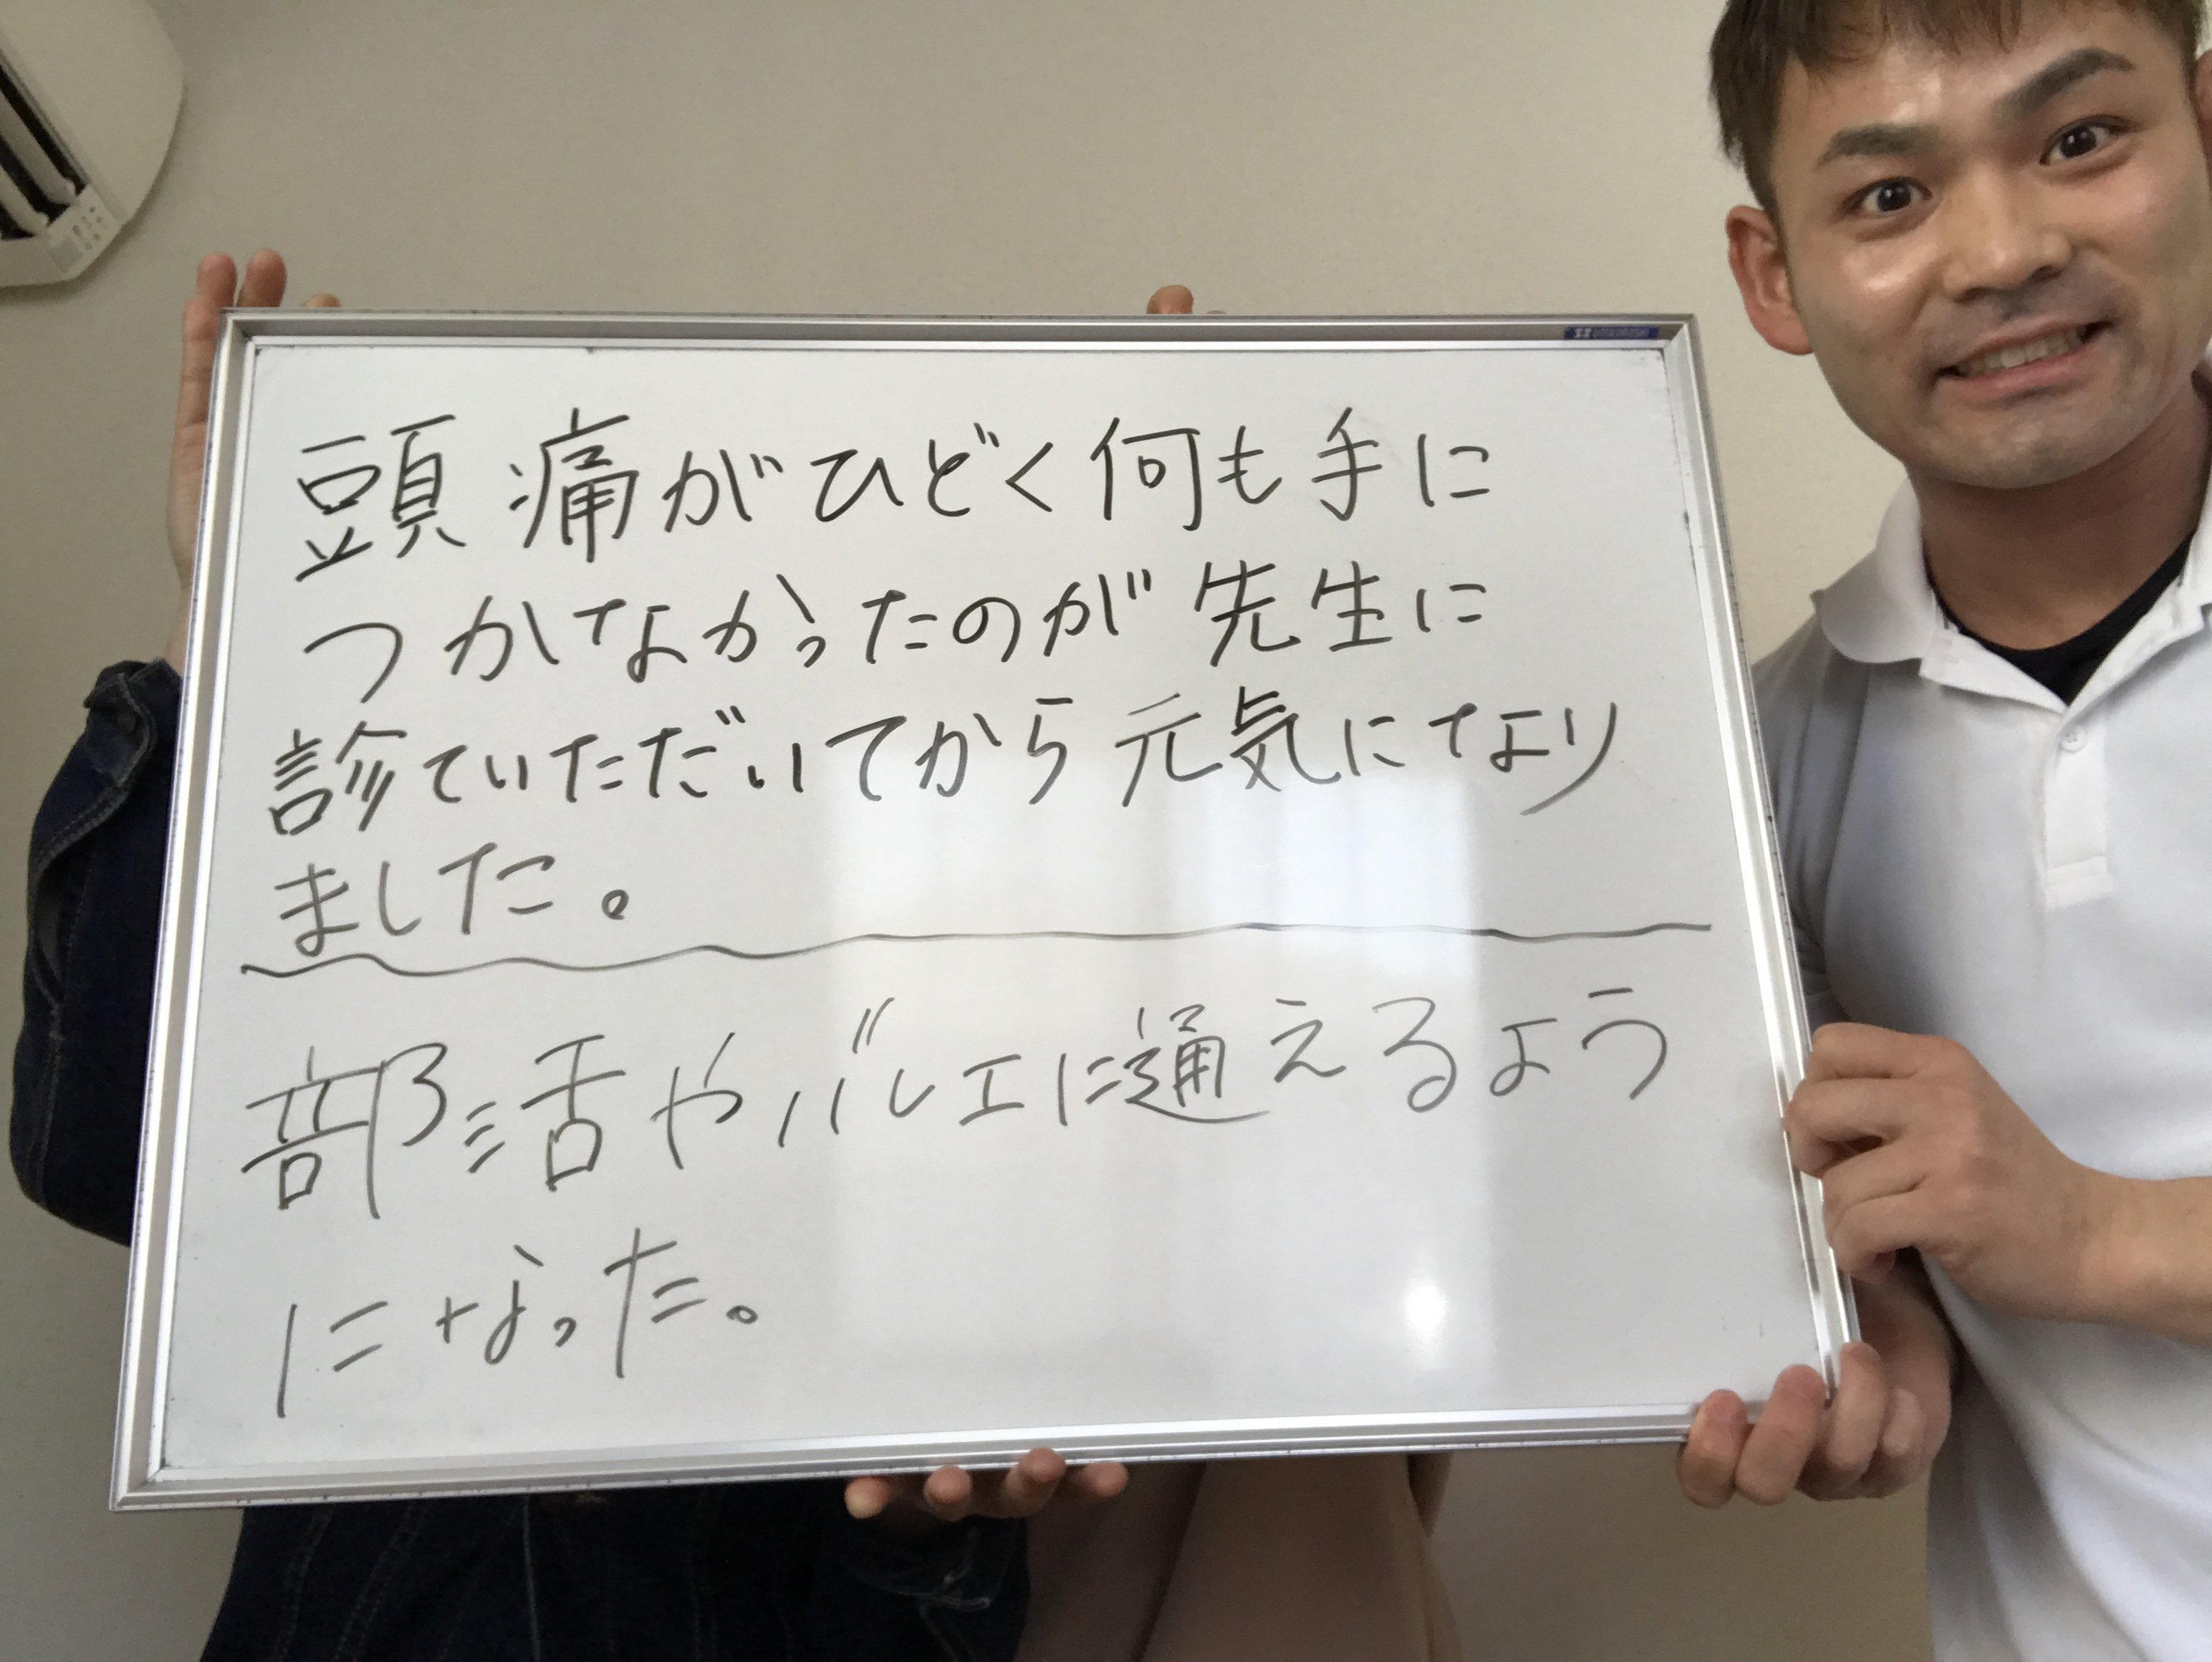 頭痛がひどく何も手に
つかなかったのが先生に
診ていただいてから元気になり
ました。
部活やバレエに通えるよう
になった。